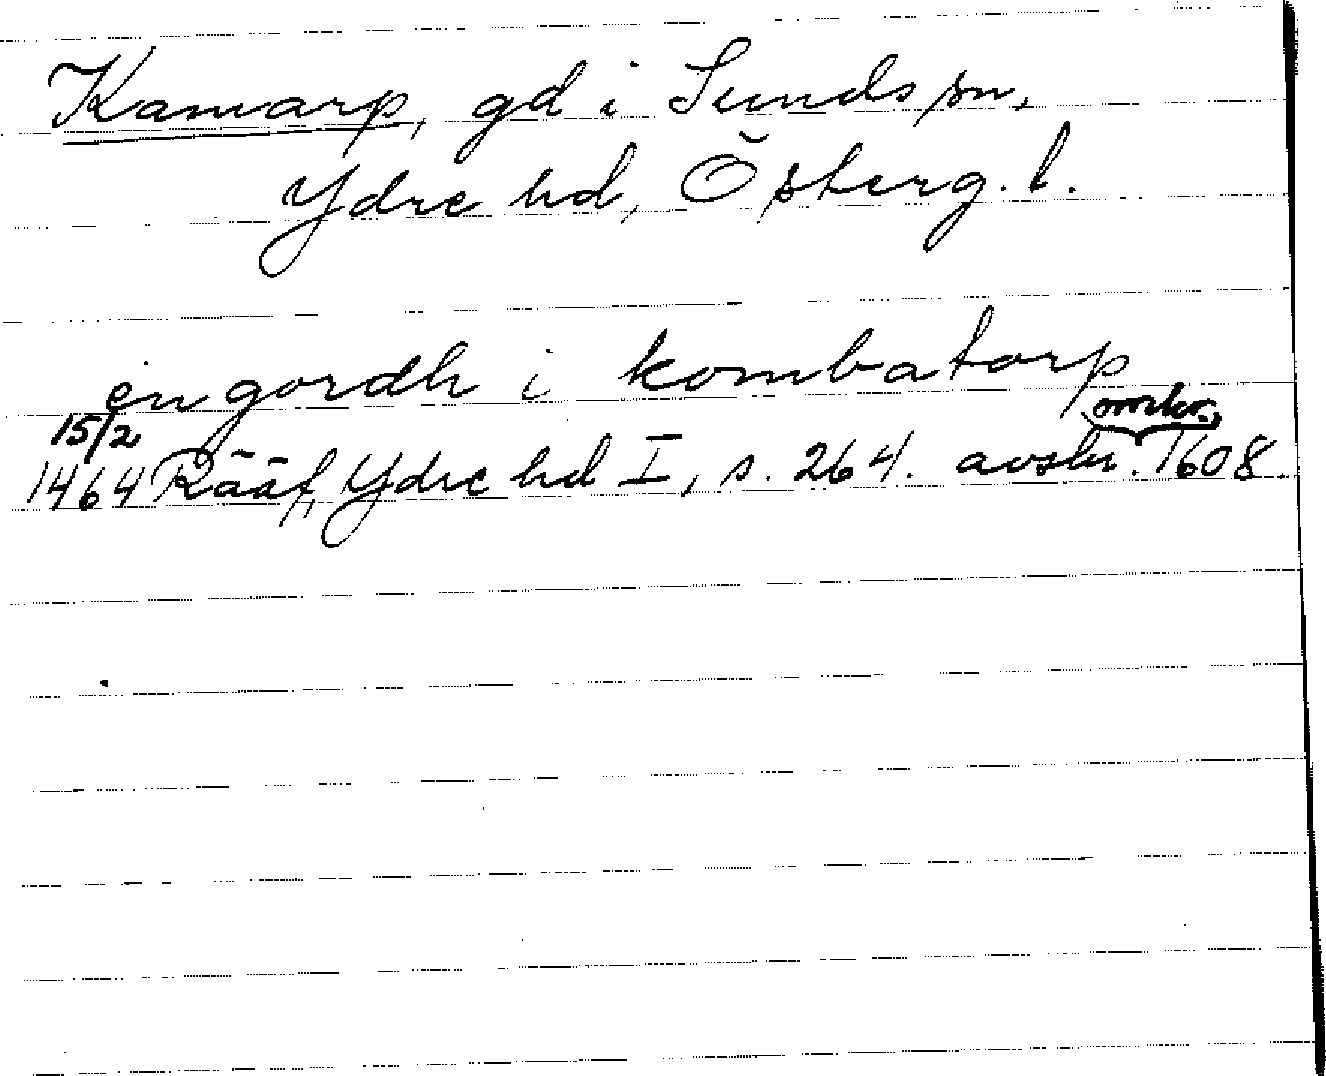 Kamarp, gd i Sunds sn,
Ydre hd, Österg. l.
en gordh i kombatorp
15/2 omkr.
1464 Rääf, Ydre hd I, s. 264. avskr. 1608.